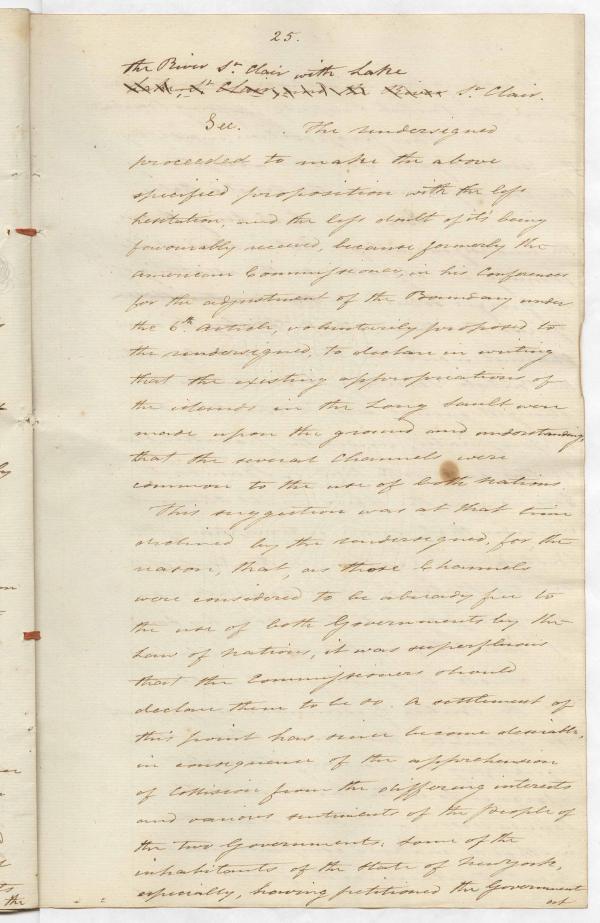 25.
the River St. Clair with Lake
St. Clair.
See. The undersigned
proceeded to make the above
specified proposition with the less
hesitation, and the less doubt of its being
favourably received, because formerly the
American Commissioner, in his Conferences
for the adjustment of the Boundary under
the 6th Article, voluntarily proposed to
the undersigned, to declare in writing
that the existing appropriations of
the islands in the Long Sault were
made upon the ground and understanding,
that the several Channels were
common to the use of both nations
This suggestion was at that time
declined by the undersigned, for the
reason, that, as those Channels
were considered to be already free to
the use of both Governments by the
Law of nations, it was superfluous
that the Commissioners should
declare them to be so. A settlement of
this point has since become desirable,
in consequence of the apprehension
of Collision from the differing interests
and various sentiments of the People of
the two Governments; some of the
inhabitants of the State of New York,
especially, having petitioned the Government
at
the